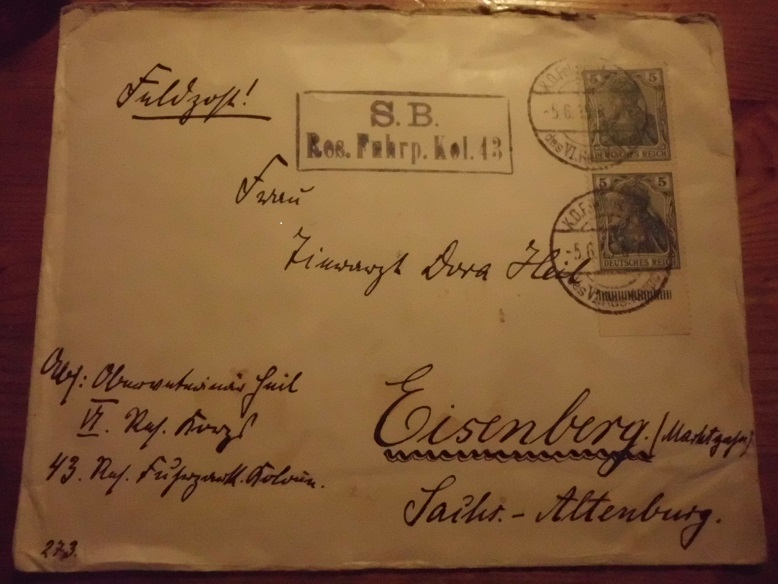 Feldpost!
S.B.
Res. Fuhrp. Kol. 43
5 5
DEUTSCHES REICH
5 5
DEUTSCHES REICH
-5.6.
-5.6.
Frau
Tierarzt Dora Heil
Eisenberg. (Marktgasse)
Sachs.-Altenburg.
Abs: Oberveterinär Heil
VI. Res. Korps
43. Res. Fuhrpark. Kolonn.
273.